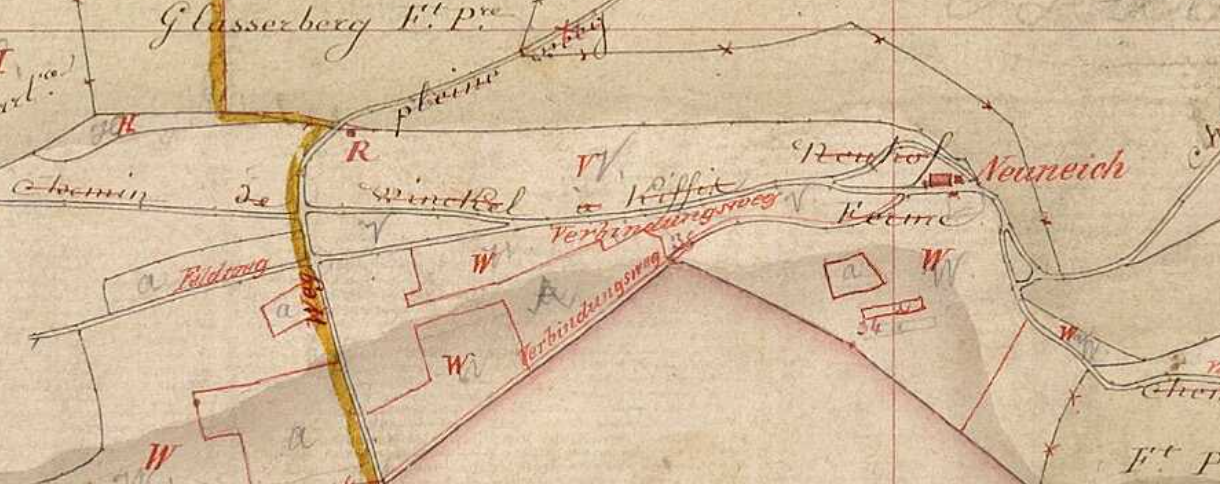 Glasserberg F.t P.re
pleine
R
R
V V
Neuhof
Neuneich
Chemin de Winckel à Kiffis
Verbindungsweg
V
Ferme
V
W
W
a
Feldweg
Weg
a
a
W
Verbindungsweg
W
W
a
W
F.t P